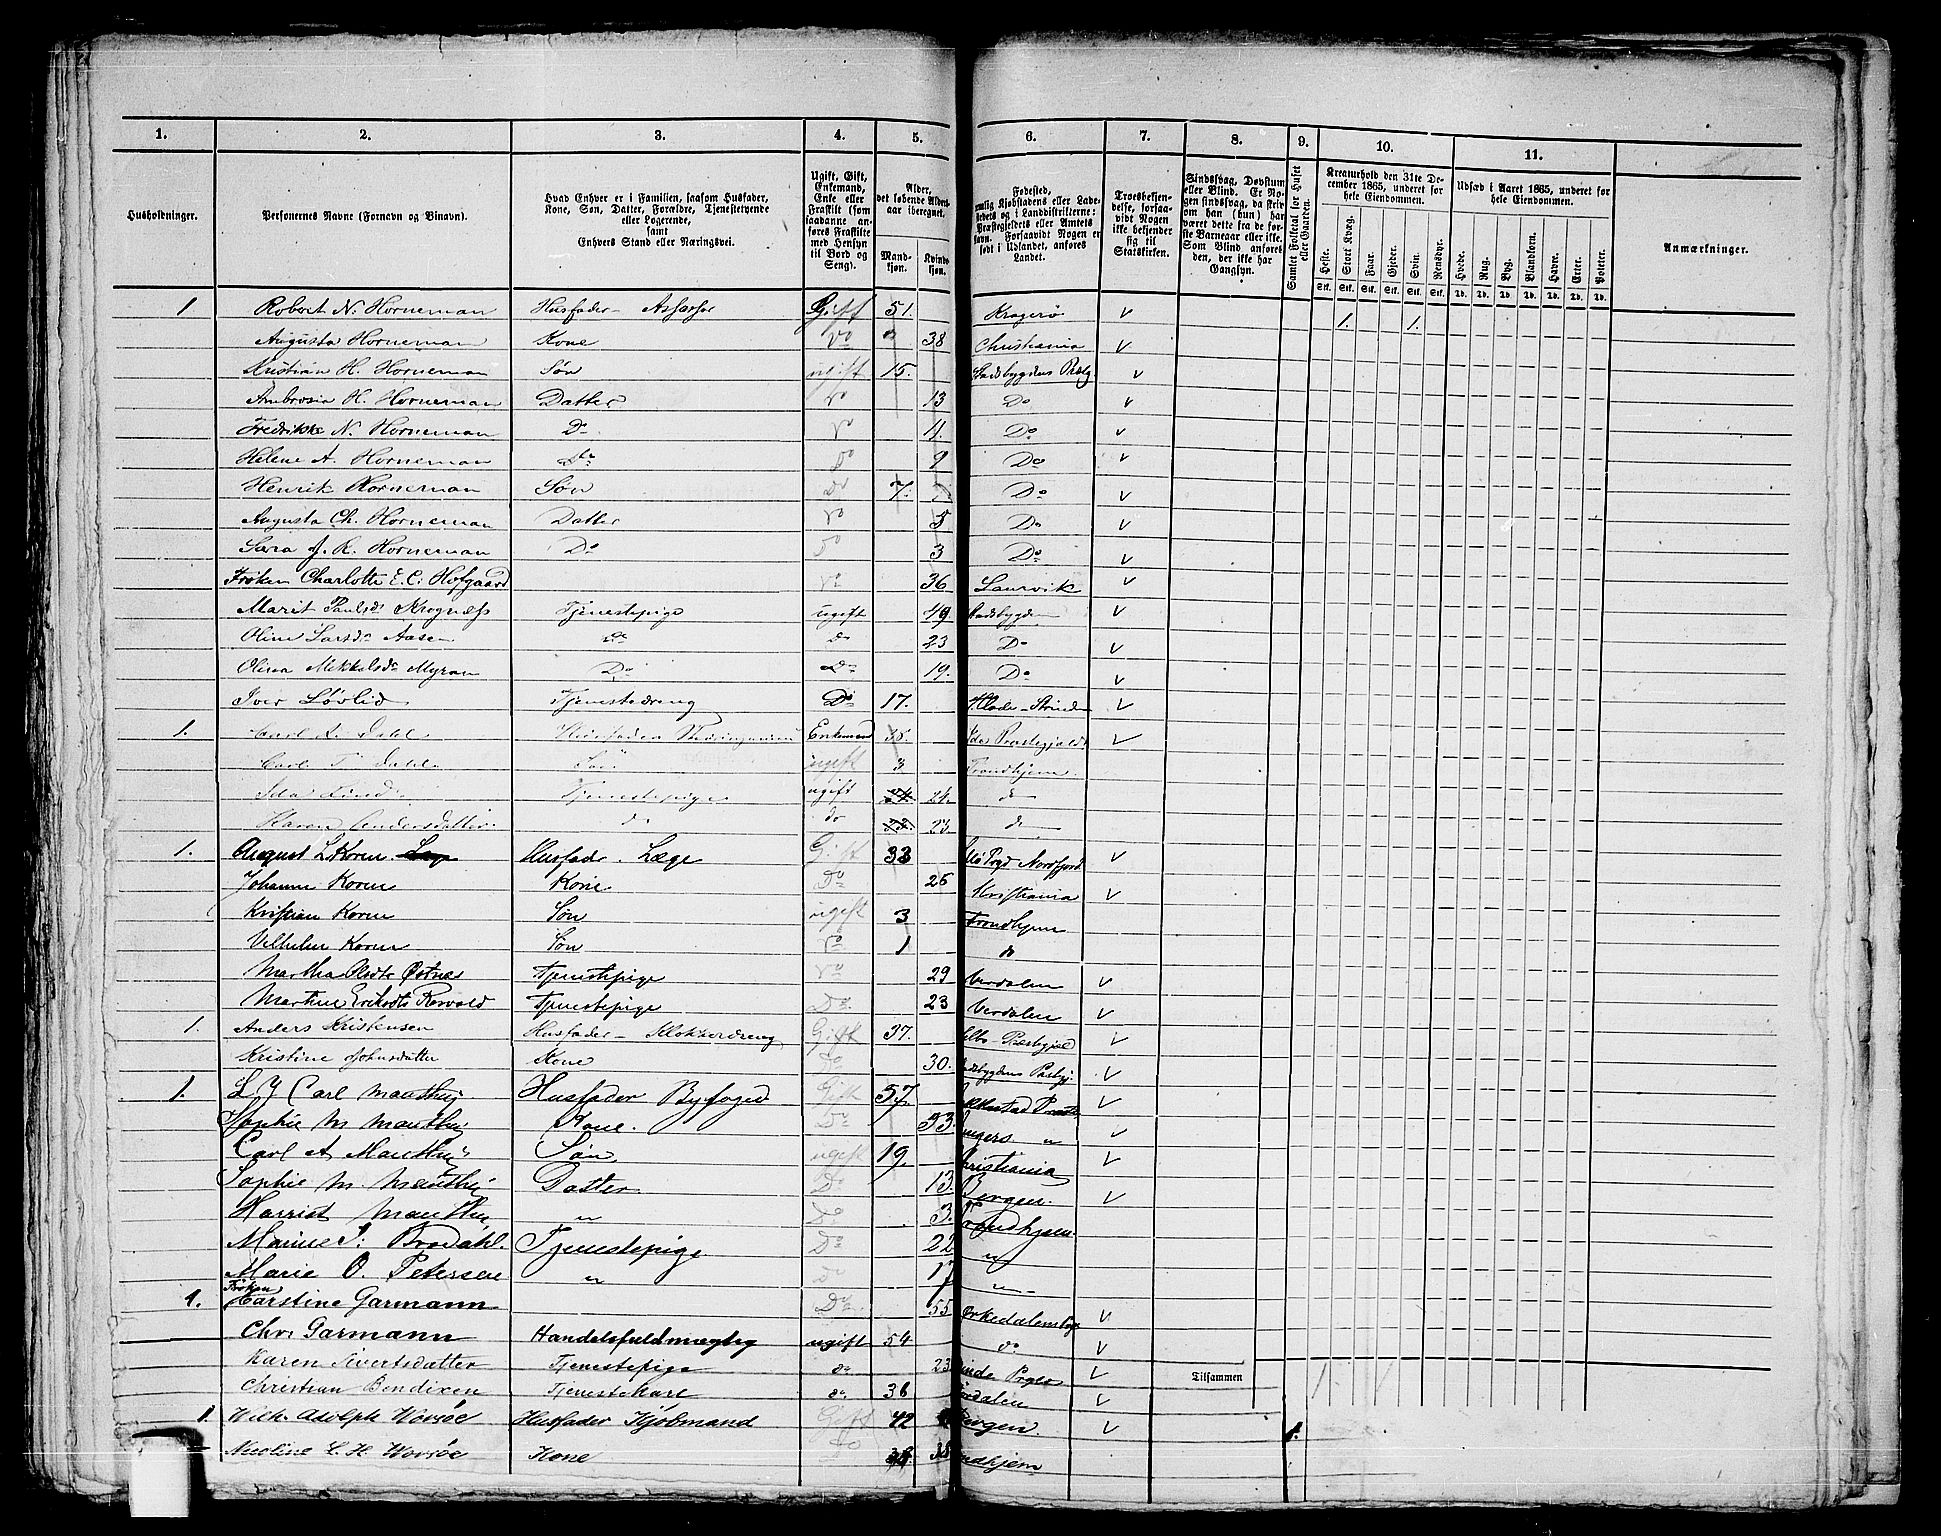 1. 2. 3. 4. 5. 6. 7. 8. 9. 10. 11.
Husholdninger.
Personernes Navne (Fornavn og Binavn).
Hvad Enhver er i Familien, saasom Husfader, Kone, Søn, Datter, Forældre, Tjenestetyende eller Logerende, samt Enhvers Stand eller Næringsvei.
Ugift, Gift, Enkemand, Enke eller Fraskilt (som saadanne anføres Fraskilte med Hensyn til Bord og Seng).
Alder, det løbende Aldersaar iberegnet.
Mandkjøn. Kvindekjøn.
Fødested, nemlig Kjøbstadens eller Ladestedets og i Landdistrikterne: Præstegjeldets eller Amtets Navn. Forsaavidt Nogen er født i Udlandet, anføres Landet.
Troesbekjendelse, forsaavidt Nogen ikke bekjender sig til Statskirken.
Sindssvag, Døvstum eller Blind. Er Nogen sindssvag, da skriv om han (hun) har været dette fra de første Barneaar eller ikke. Som Blind anføres den, der ikke har Gangsyn.
Samlet Folketal for Huset eller Gaarden.
Kreaturhold den 31te December 1865, underet for hele Eiendommen.
Heste. Stort Kvæg. Faar. Gjeder. Svin. Rensdyr.
Udsæd i Aaret 1865, underet for hele Eiendommen.
Hvede. Rug. Byg. Blandkorn. Havre. Erter. Poteter.
Anmærkninger.
1 Robert N. Horneman Husfader Gift 51. Kragerø v 1. 1.
Augusta Horneman Kone Do " 38 Christiania v
Kristian H. Horneman Søn ugift 15. Stadsbygdens Præstg. v
Ambrosia H. Horneman Datter Do 13 Do v
Fredrikke N. Horneman Do Do 11. Do v
Helene A. Horneman Do Do 9 Do v
Henrik Horneman Søn Do 7. Do v
Augusta Ch. Horneman Datter Do 5 Do v
Sara J. R. Horneman Do Do 3 Do v
Frøken Charlotte E. C. Hofgaard Do 36 Laurvik v
Marit Paulsdr Krognæss Tjenestepige ugift 49 Stadsbygden v
Oline Larsdr Aasen do do 23 Do v
Olina Mikkelsdr Myran Do Do 19. Do v
Iver Løvlid Tjenestedreng Do 17. Hlade-Strinden v
1. Carl A. Dahl Husfader Enkemand 35. Præstegjeld v
Carl T. Dahl Søn ugift 3 Trondhjem
Ida Lind Tjenestepige ugift 24. do
Karen Andersdatter do do 23. do
1. August L Koren Husfader. Læge Gift 33 Nordfjord v
Johanne Koren Kone Do 26 Kristiania v
Kristian Koren Søn ugift 3 Trondhjem
Vilhelm Koren Søn Do 1 do
Martha Olsdtr Østnes Tjenestepige Do 29 Verdalen v
Martine Eriksdtr Tjenestepige Do 23 Verdalen v
1. Anders Kristensen Husfader - Klokkerdreng Gift 37. Selbo-Præstegjeld v
Kristine Johnsdatter Kone Do 30. Stadsbygdens v
1. L J Carl Manthey Husfader Byfoged Gift 57. v
Sophie M Manthey Kone. Do v
Carl A Manthey Søn ugift 19. Christiania v
Sophie M. Manthey Datter. Do 13. Bergen. v
Harriet Manthey " Do 3. Trondhjem
Marine J: Brodahl. Tjenestepige Do 22 "
Marie O. Petersen " Do 17 "
1. Frøken Karstine Garmann Do 55 v
Chr. Garmann Handelsfuldmægtig ugift 54 do v
Karen Sivertsdatter Tjenestepige do 23 v
Christian Bendixen Tjenestekarl do 36 v
1. Wilh. Adolph Worsøe Husfader Kjøbmand Gift 42 Bergen. v 1.
Nicoline C. H. Worsøe Kone Do 38 Trondhjem
Tilsammen